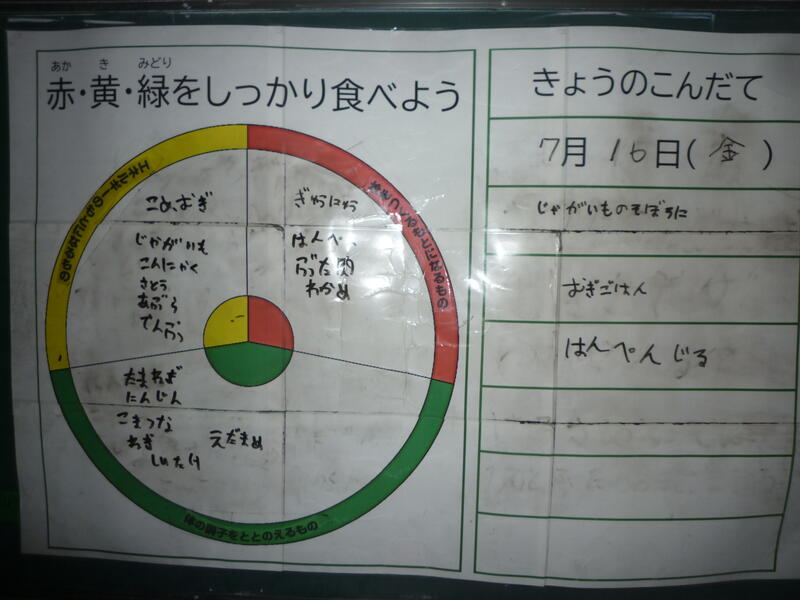 あか き みどり
赤・黄・緑をしっかり食べよう
エネルギーのもとになるもの
こめ、むぎ
じゃがいも
こんにゃく
さとう
あぶら
でんぷん
体をつくるもとになるもの
ぎゅうにゅう
はんぺん
ぶた肉
わかめ
たまねぎ
にんじん
こまつな
ねぎ
しいたけ
えだまめ
体の調子をととのえるもの
きょうのこんだて
7月16日(金)
じゃがいものそぼろに
むぎごはん
はんぺんじる